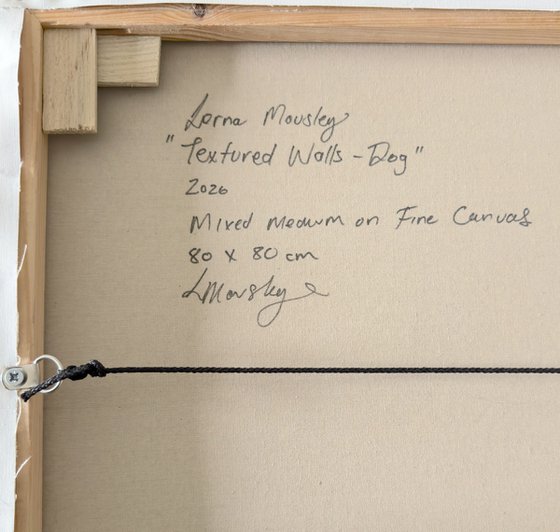 Lorna Mousley
"Textured Walls - Dog"
2026
Mixed Medium on Fine Canvas
80 x 80 cm
LMousley